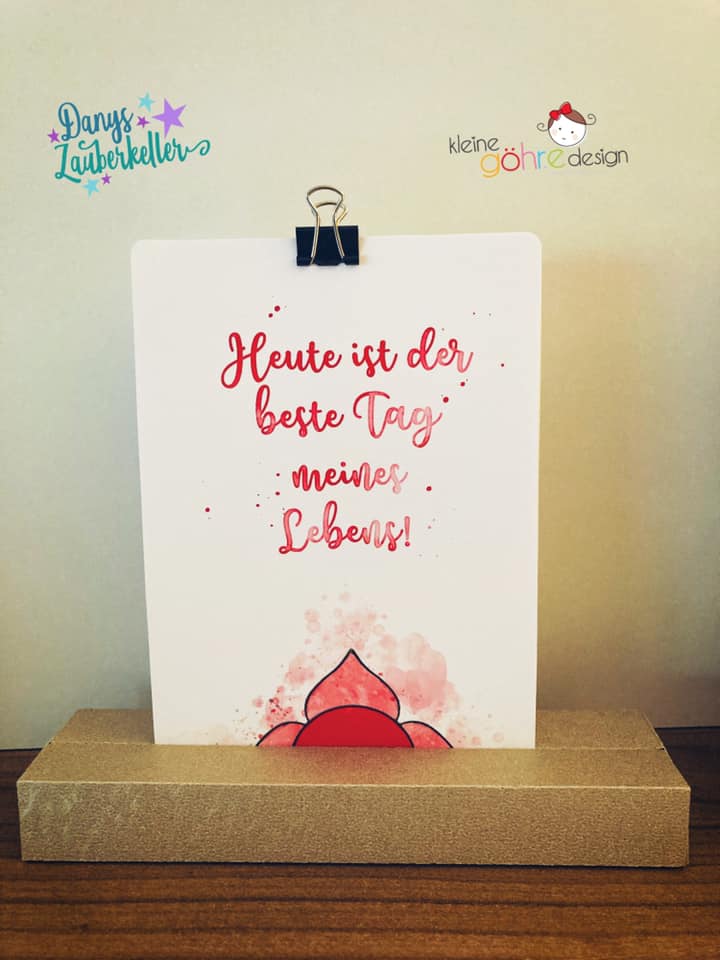 Danys
Zauberkeller
kleine
göhre design
Heute ist der
beste Tag
meines
Lebens!